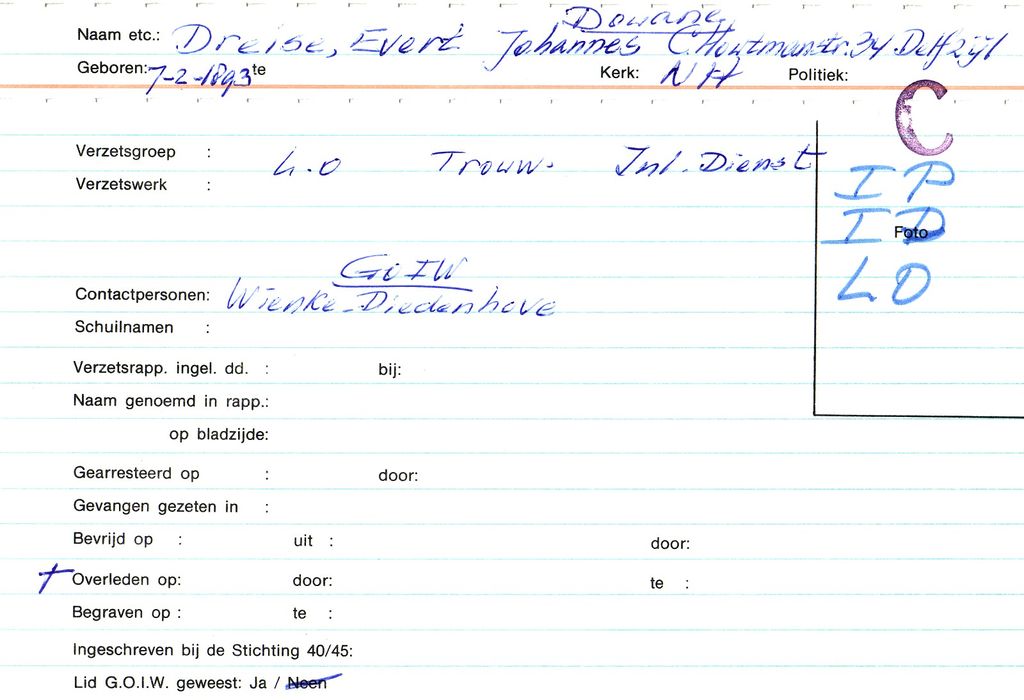 Douane
Naam etc.: Dreise, Evert Johannes C. Houtmanstr. 34 Delfzijl
Geboren: 7-2-1893 te Kerk: NH Politiek:
C
Verzetsgroep : L.O Trouw. Inl. Dienst
Verzetswerk :
I P
I D
Foto
L O
G.O.I.W
Contactpersonen: Wienke-Diedenhove
Schuilnamen :
Verzetsrapp. ingel. dd. : bij:
Naam genoemd in rapp.:
op bladzijde:
Gearresteerd op : door:
Gevangen gezeten in :
Bevrijd op : uit : door:
† Overleden op: door: te :
Begraven op : te :
Ingeschreven bij de Stichting 40/45:
Lid G.O.I.W. geweest: Ja / Neen